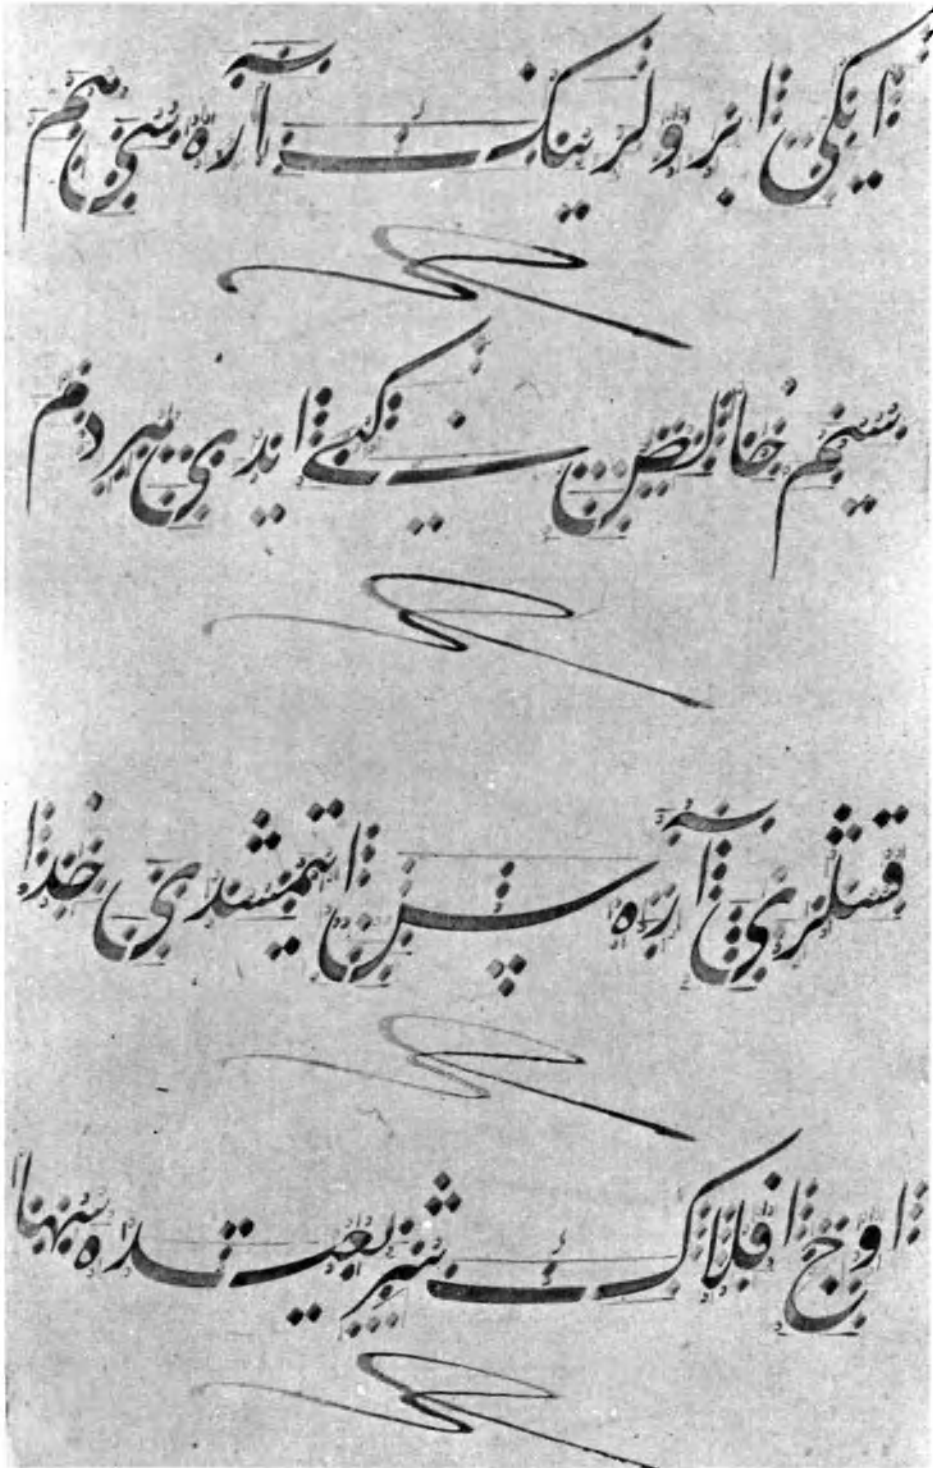 ایکی ابرولرینک آره سی هم
سیم خالص کبی ایدی هردم
قشلری آره سن ایتمشدی خدا
اوج افلاک شریعتده سها